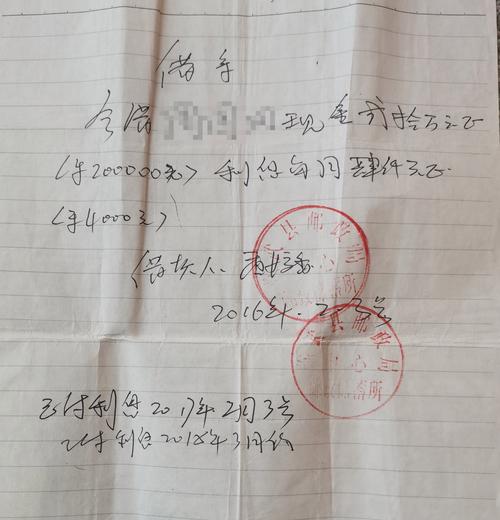 借条
今借 现金贰拾万元正
(¥200000元) 利息每月肆仟元正
(¥4000元)
借款人:
2016年.2.3号
县邮政局
心
储所
县邮政局
中心
储所
已付利息2017年2月3号
已付利息2018年3月份